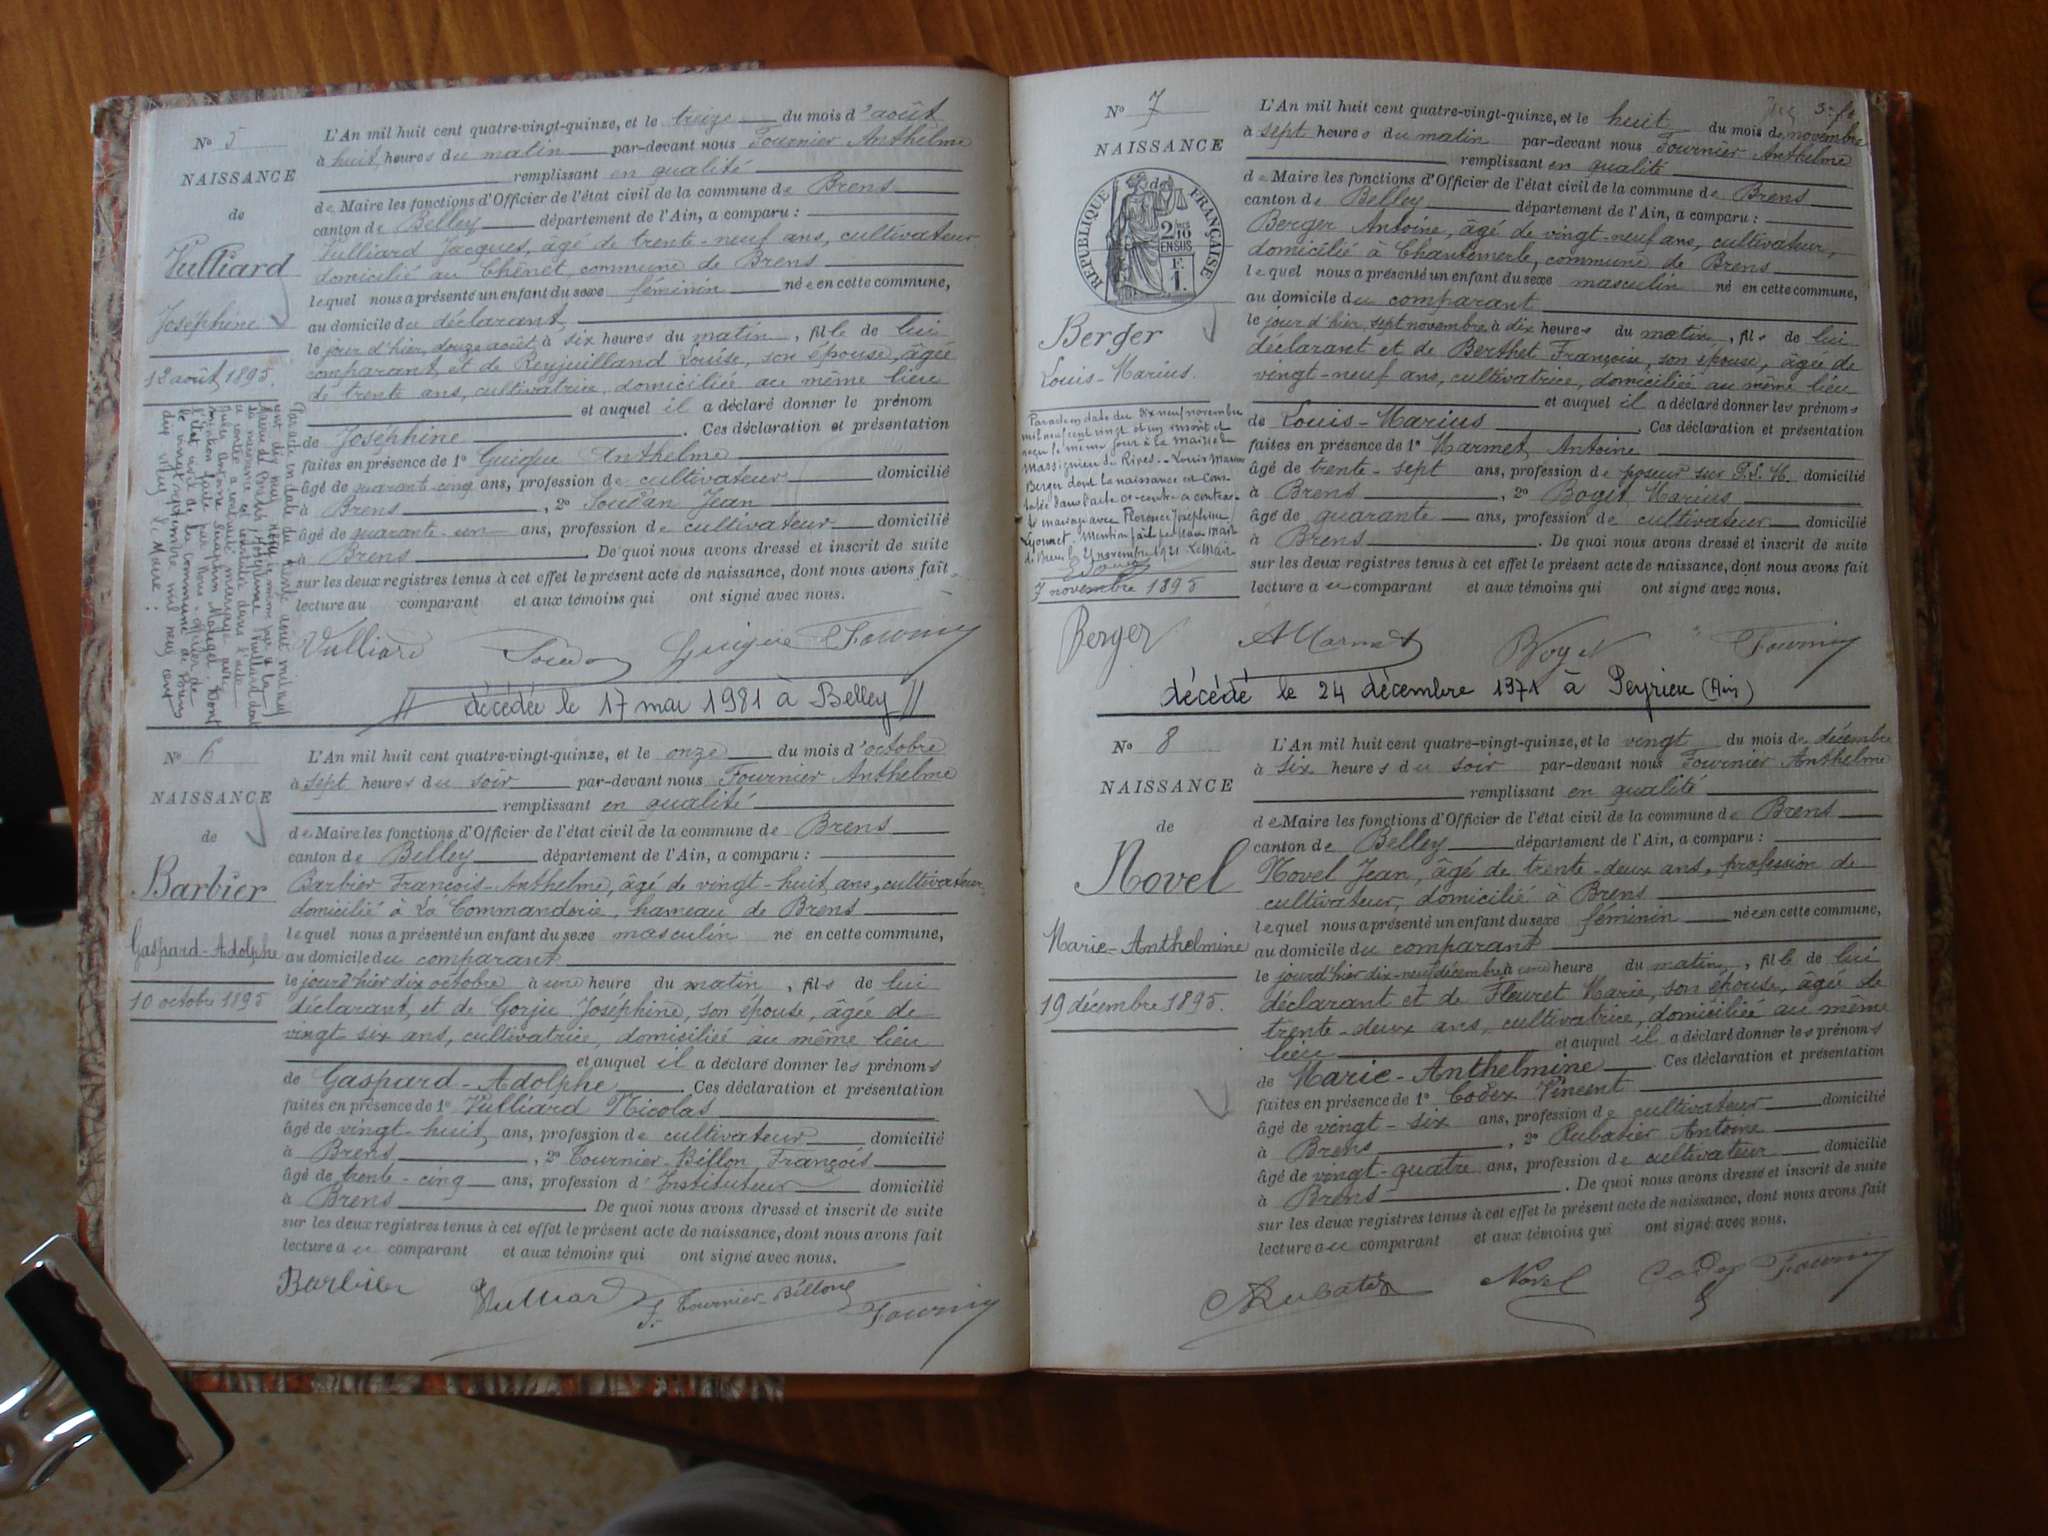 Nº 5
NAISSANCE
de
Vulliard
Joséphine
12 août 1895.
L'An mil huit cent quatre-vingt-quinze, et le treize du mois d'août
à huit heures du matin par-devant nous Fournier Anthelme
remplissant en qualité
de Maire les fonctions d'Officier de l'état civil de la commune de Brens
canton de Belley département de l'Ain, a comparu :
Vulliard Jacques, âgé de trente-neuf ans, cultivateur
domicilié au Chênet, commune de Brens
lequel nous a présenté un enfant du sexe féminin née en cette commune,
au domicile du déclarant
le jour d'hier, douze août, à six heures du matin, fille de lui
comparant et de Reyjuilland Louise, son épouse, âgée
de trente ans, cultivatrice, domiciliée au même lieu
et auquel il a déclaré donner le prénom
de Joséphine . Ces déclaration et présentation
faites en présence de 1º Guigue Anthelme
âgé de quarante-cinq ans, profession de cultivateur domicilié
à Brens , 2º Soudan Jean
âgé de quarante-un ans, profession de cultivateur domicilié
à Brens . De quoi nous avons dressé et inscrit de suite
sur les deux registres tenus à cet effet le présent acte de naissance, dont nous avons fait
lecture au comparant et aux témoins qui ont signé avec nous.
Vulliard Soudan Guigue Fournier
décédée le 17 mai 1981 à Belley
Nº 6
NAISSANCE
de
Barbier
Gaspard-Adolphe
10 octobre 1895
L'An mil huit cent quatre-vingt-quinze, et le onze du mois d'octobre
à sept heures du soir par-devant nous Fournier Anthelme
remplissant en qualité
de Maire les fonctions d'Officier de l'état civil de la commune de Brens
canton de Belley département de l'Ain, a comparu :
Barbier François-Anthelme, âgé de vingt-huit ans, cultivateur
domicilié à La Commanderie, hameau de Brens
lequel nous a présenté un enfant du sexe masculin né en cette commune,
au domicile du comparant
le jourd'hier dix octobre à une heure du matin, fils de lui
déclarant et de Gorju Joséphine, son épouse, âgée de
vingt six ans, cultivatrice, domiciliée au même lieu
et auquel il a déclaré donner les prénoms
de Gaspard-Adolphe . Ces déclaration et présentation
faites en présence de 1º Vulliard Nicolas
âgé de vingt-huit ans, profession de cultivateur domicilié
à Brens , 2º Tournier-Billon François
âgé de trente-cinq ans, profession d'Instituteur domicilié
à Brens . De quoi nous avons dressé et inscrit de suite
sur les deux registres tenus à cet effet le présent acte de naissance, dont nous avons fait
lecture au comparant et aux témoins qui ont signé avec nous.
Barbier Vulliard F. Tournier-Billon Fournier
Nº 7
NAISSANCE
RÉPUBLIQUE FRANÇAISE
2/10 EN SUS
F. 1.
Berger
Louis-Marius.
Par acte en date du dix neuf novembre
mil neuf cent vingt et un inscrit et
reçu le même jour à la mairie de
Massignieu de Rives. Louis Marius
Berger dont la naissance est cons-
tatée dans l'acte ci-contre a contrac-
té mariage avec Florence Joséphine
Lyonnet. Mention faite par Nous Maire
7 novembre 1895
L'An mil huit cent quatre-vingt-quinze, et le huit du mois de novembre
à sept heures du matin par-devant nous Fournier Anthelme
remplissant en qualité
de Maire les fonctions d'Officier de l'état civil de la commune de Brens
canton de Belley département de l'Ain, a comparu :
Berger Antoine, âgé de vingt-neuf ans, cultivateur,
domicilié à Chantemerle, commune de Brens
lequel nous a présenté un enfant du sexe masculin né en cette commune,
au domicile du comparant
le jour d'hier, sept novembre à dix heures du matin, fils de lui
déclarant et de Berthet Françoise, son épouse, âgée de
vingt-neuf ans, cultivatrice, domiciliée au même lieu
et auquel il a déclaré donner les prénoms
de Louis-Marius . Ces déclaration et présentation
faites en présence de 1º Marmet Antoine
âgé de trente-sept ans, profession de poseur sur P.L.M. domicilié
à Brens , 2º Boget Marius
âgé de quarante ans, profession de cultivateur domicilié
à Brens . De quoi nous avons dressé et inscrit de suite
sur les deux registres tenus à cet effet le présent acte de naissance, dont nous avons fait
lecture au comparant et aux témoins qui ont signé avec nous.
Berger A Marmet Boget Fournier
décédé le 24 décembre 1971 à Peyrieu (Ain)
Nº 8
NAISSANCE
de
Novel
Marie-Anthelmine
19 décembre 1895.
L'An mil huit cent quatre-vingt-quinze, et le vingt du mois de décembre
à six heures du soir par-devant nous Fournier Anthelme
remplissant en qualité
de Maire les fonctions d'Officier de l'état civil de la commune de Brens
canton de Belley département de l'Ain, a comparu :
Novel Jean, âgé de trente-deux ans, profession de
cultivateur, domicilié à Brens
lequel nous a présenté un enfant du sexe féminin née en cette commune,
au domicile du comparant
le jourd'hier dix-neuf décembre à une heure du matin, fille de lui
déclarant et de Fleuret Marie, son épouse, âgée de
trente-deux ans, cultivatrice, domiciliée au même
lieu et auquel il a déclaré donner les prénoms
de Marie-Anthelmine . Ces déclaration et présentation
faites en présence de 1º Codex Vincent
âgé de vingt-six ans, profession de cultivateur domicilié
à Brens , 2º Rubatier Antoine
âgé de vingt-quatre ans, profession de cultivateur domicilié
à Brens . De quoi nous avons dressé et inscrit de suite
sur les deux registres tenus à cet effet le présent acte de naissance, dont nous avons fait
lecture au comparant et aux témoins qui ont signé avec nous.
Rubatier Novel Codex Fournier